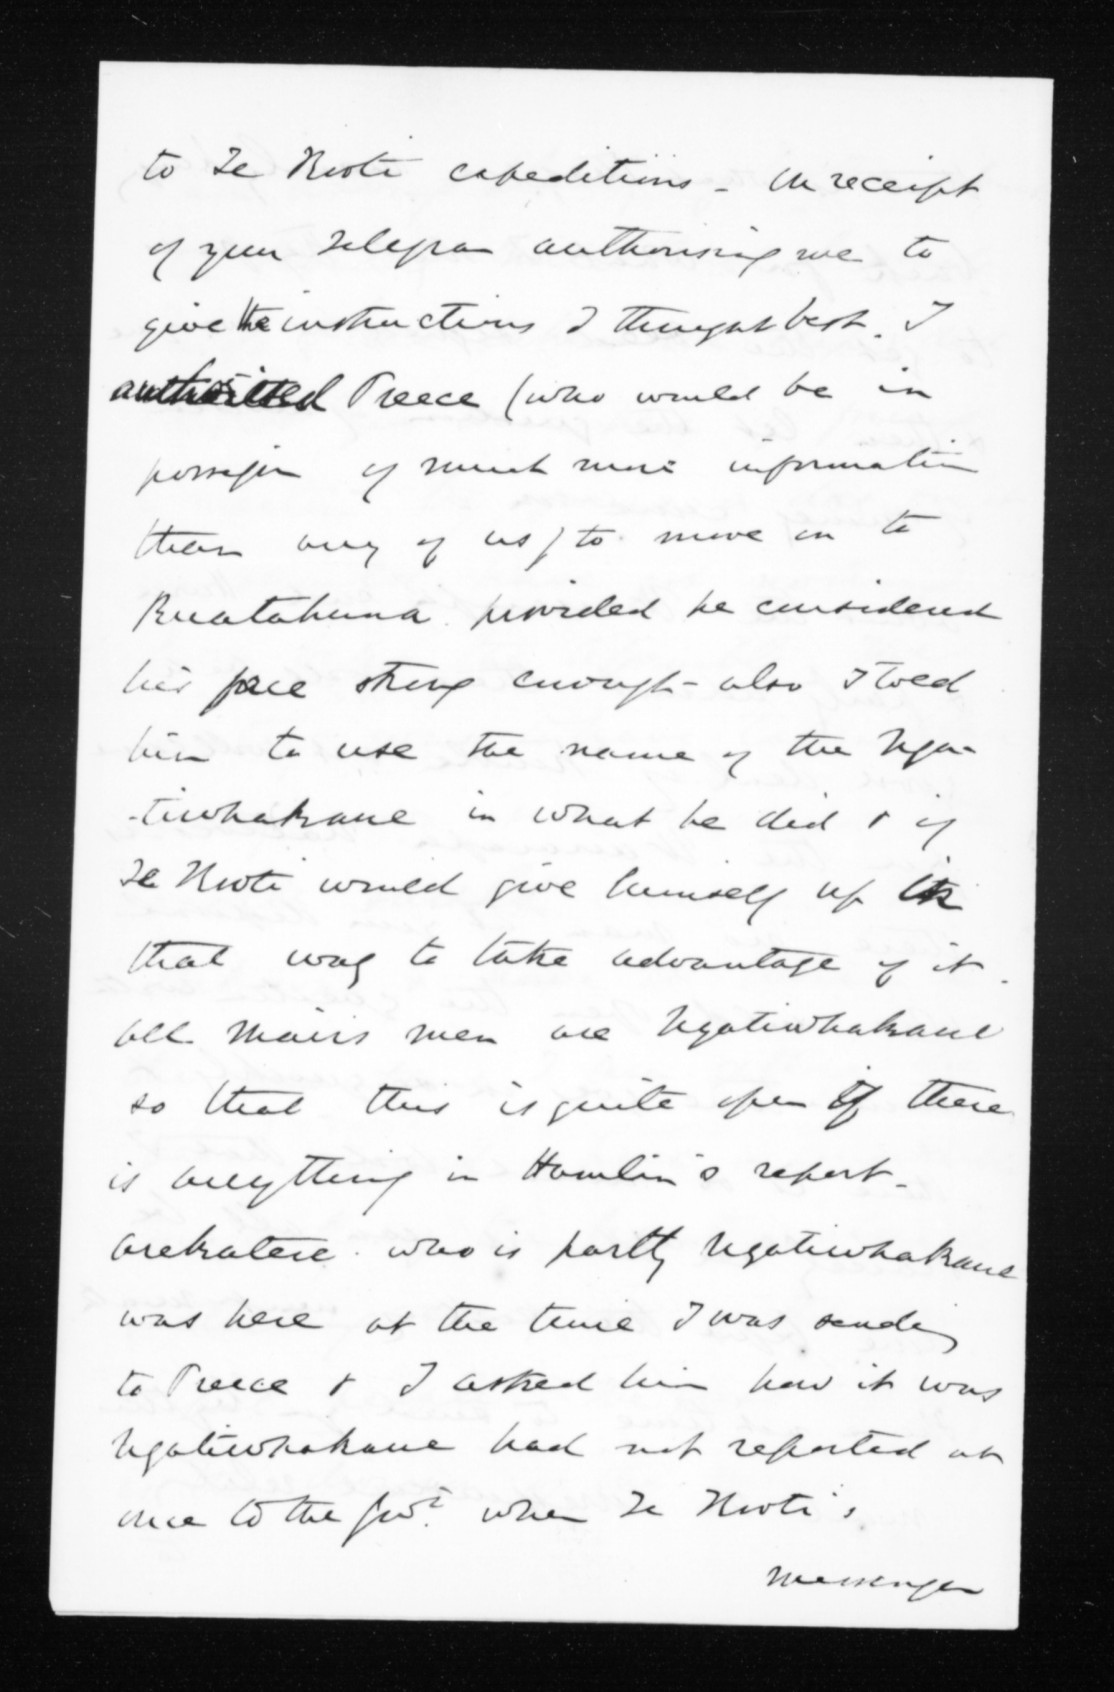 to Te Kooti expeditions - On receipt
of your Telegram authorising me to
give the instructions I thought best. I
authorised Preece (who would be in
possession of much more information
than any of us) to move on to
Ruatahuna provided he considered
his force strong enough - also I told
him to use the name of the Nga-
-tiwhakaue in what he did & if
Te Kooti would give himself up in
that way to take advantage of it.
all Mairs men are Ngatiwhakaue
so that this is quite open if there
is anything in Hamlin's report -
Arekatere. who is partly Ngatiwhakaue
was here at the time I was sending
to Preece & I asked him how it was
Ngatiwhakaue had not reported at
once to the Govt. when Te Kooti's
messenger